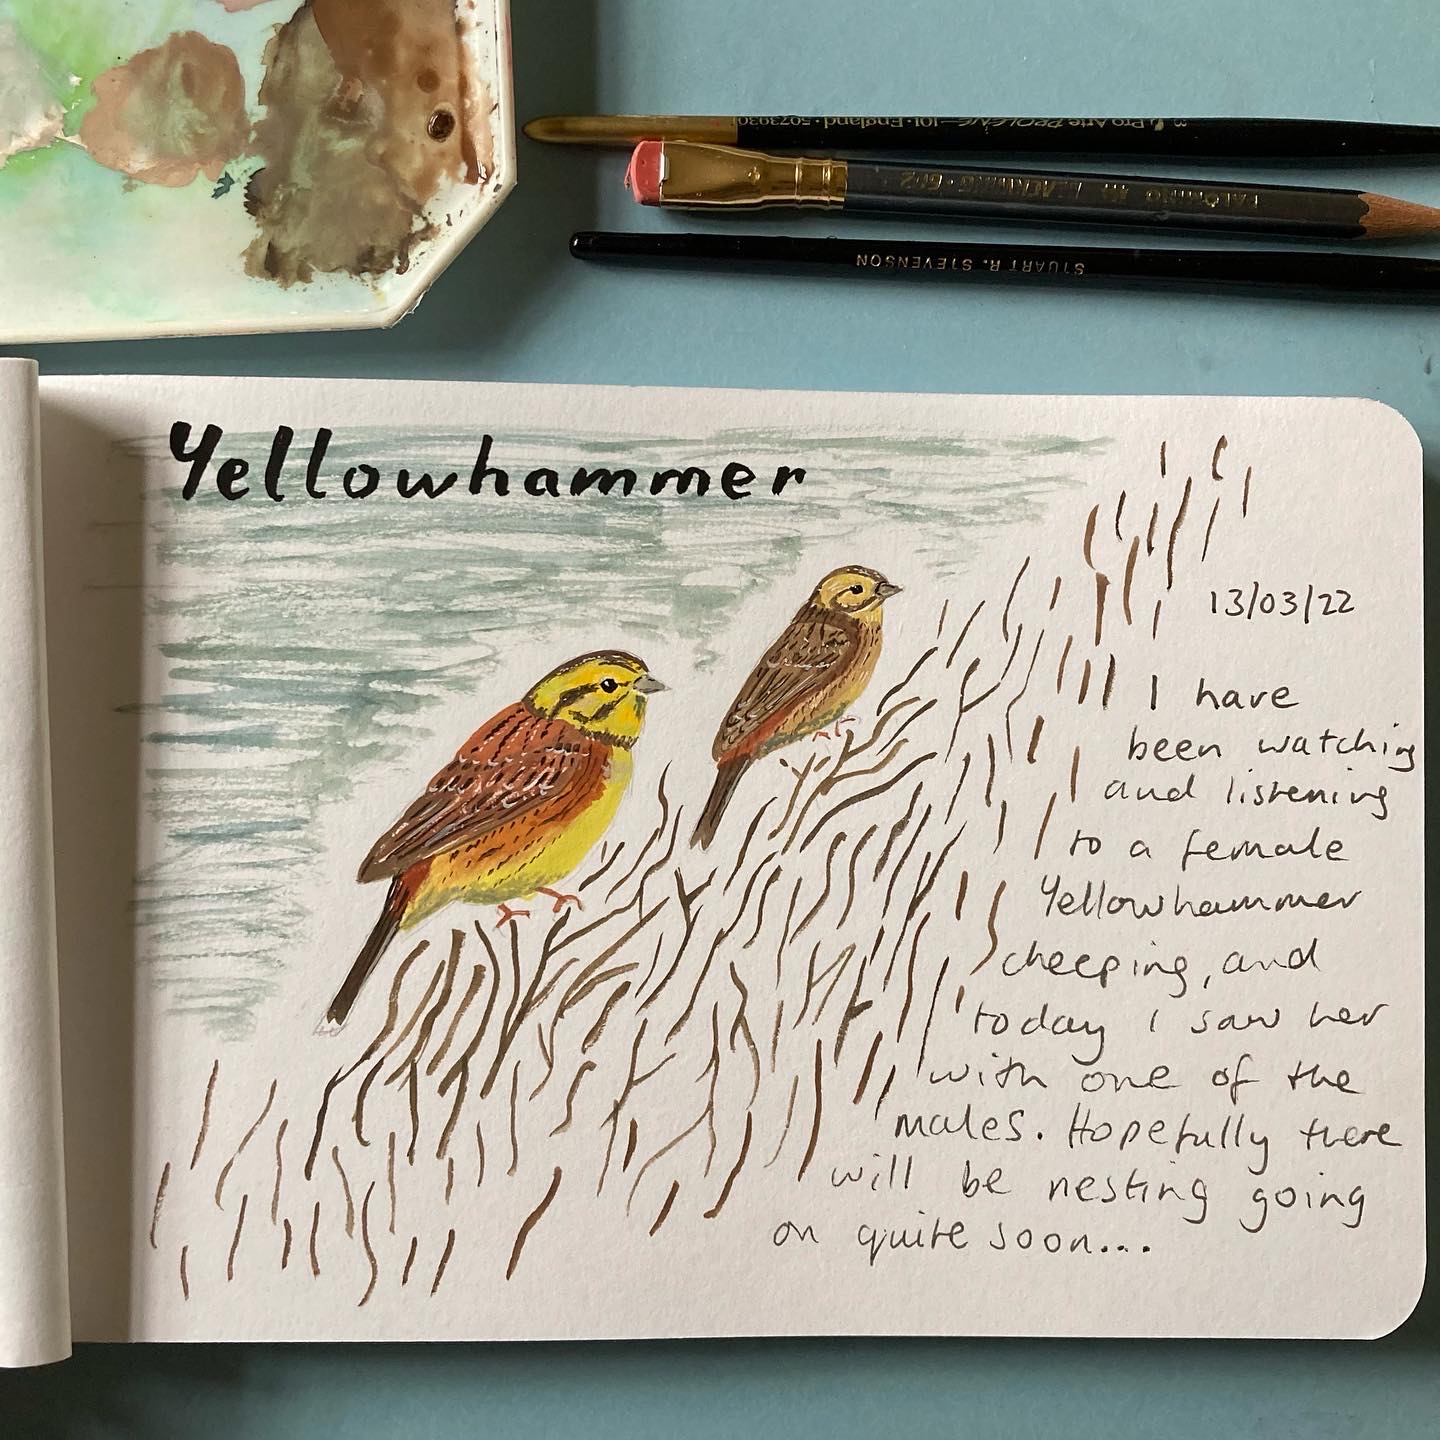 Pro Arte PROLENE—101·England·
PALOMINO BLACKWING·602
STUART R. STEVENSON
Yellowhammer
13/03/22
I have
been watching
and listening
to a female
Yellowhammer
cheeping, and
today I saw her
with one of the
males. Hopefully there
will be nesting going
on quite soon...